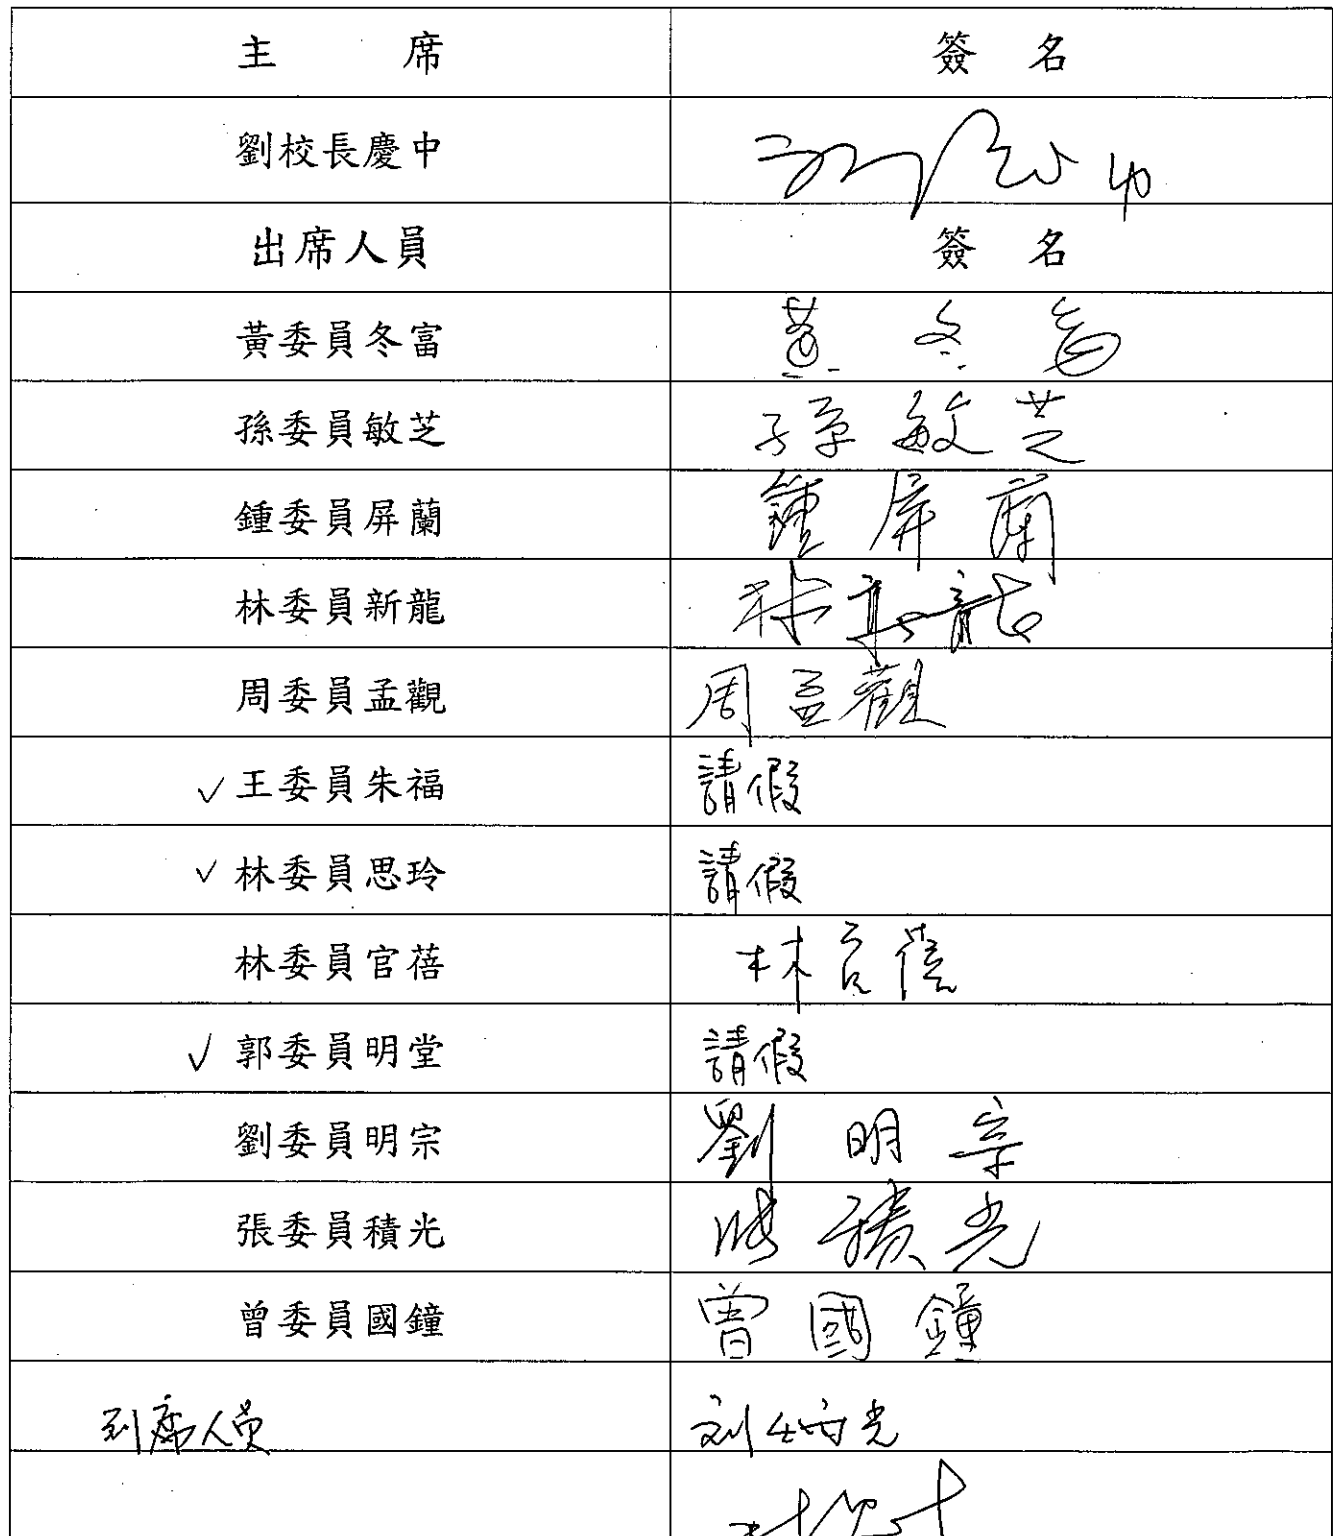 主 席 簽 名
劉校長慶中
出席人員 簽 名
黃委員冬富 黃冬富
孫委員敏芝 孫敏芝
鍾委員屏蘭 鍾屏蘭
林委員新龍 林新龍
周委員孟觀 周孟觀
✓王委員朱福 請假
✓林委員思玲 請假
林委員官蓓 林官蓓
✓郭委員明堂 請假
劉委員明宗 劉明宗
張委員積光 張積光
曾委員國鐘 曾國鐘
列席人員